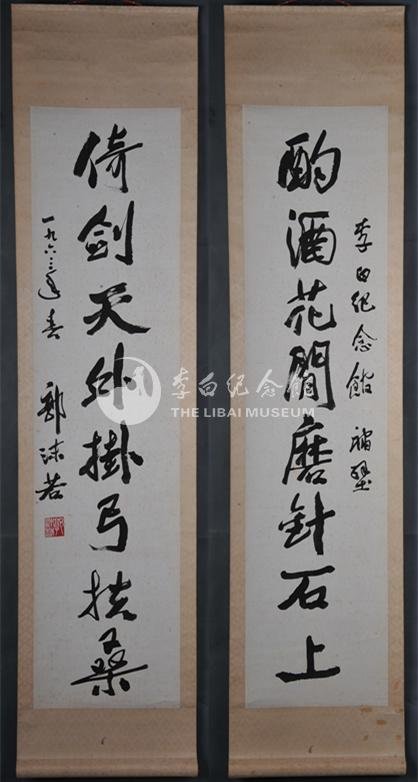 李白纪念馆 補壁
酌酒花間磨針石上
倚劍天外掛弓扶桑
一九六三年春 郭沫若
李白纪念馆
THE LIBAI MUSEUM